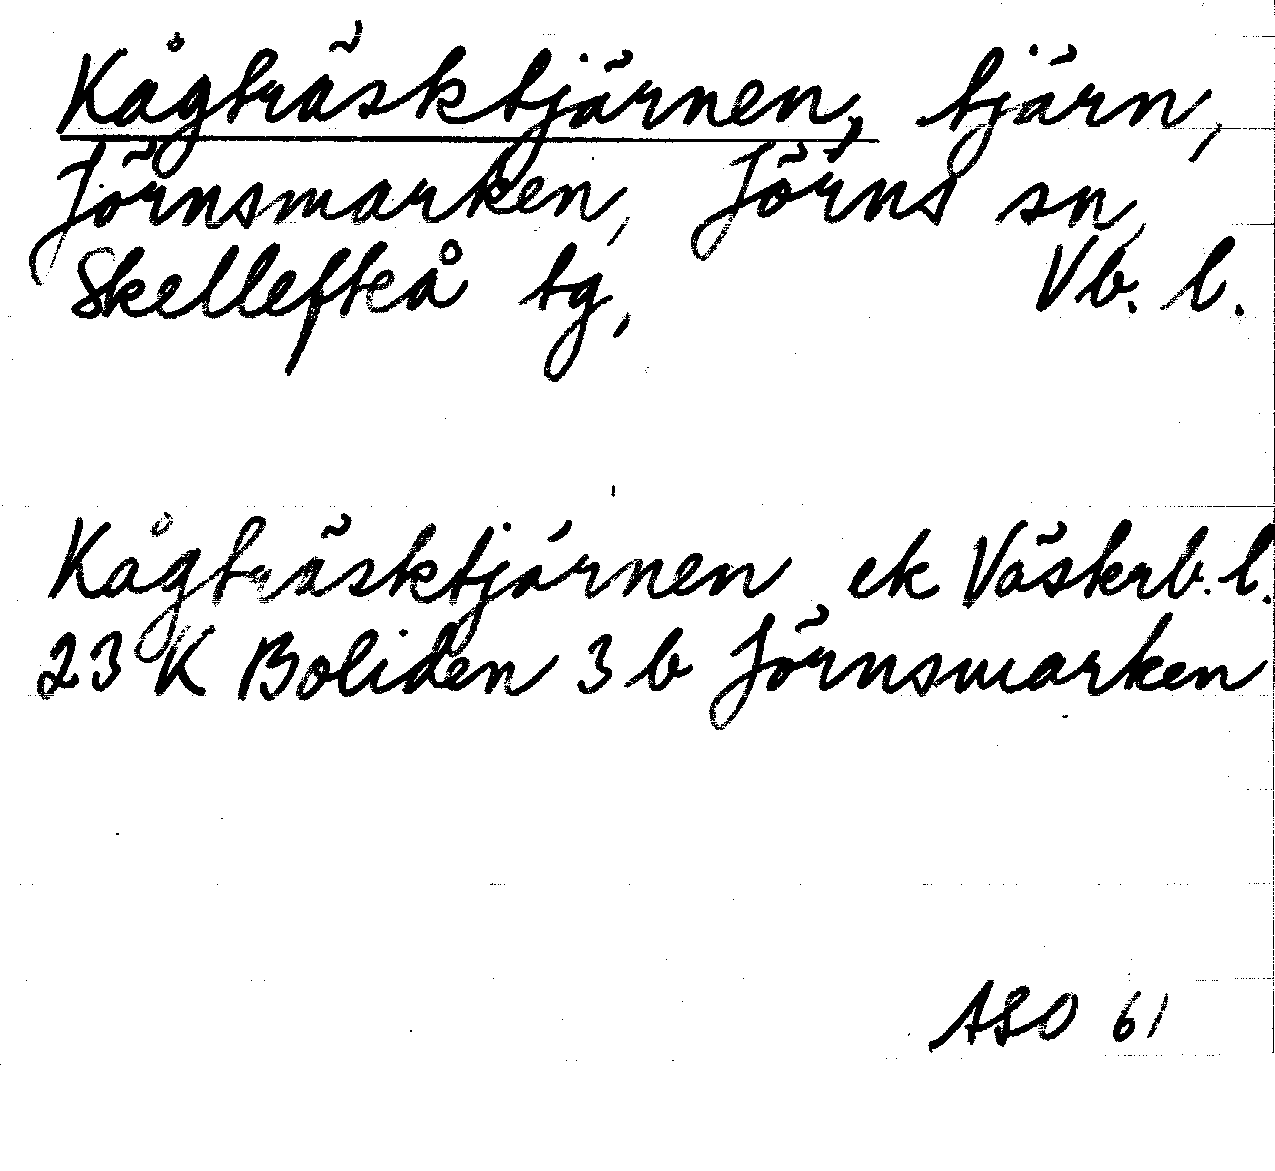 Kågträsktjärnen, tjärn,
Jörnsmarken, Jörns sn,
Skellefteå tg, Vb. l.
Kågträsktjärnen ek Västerb. l.
23 K Boliden 3 b Jörnsmarken
ASO 61